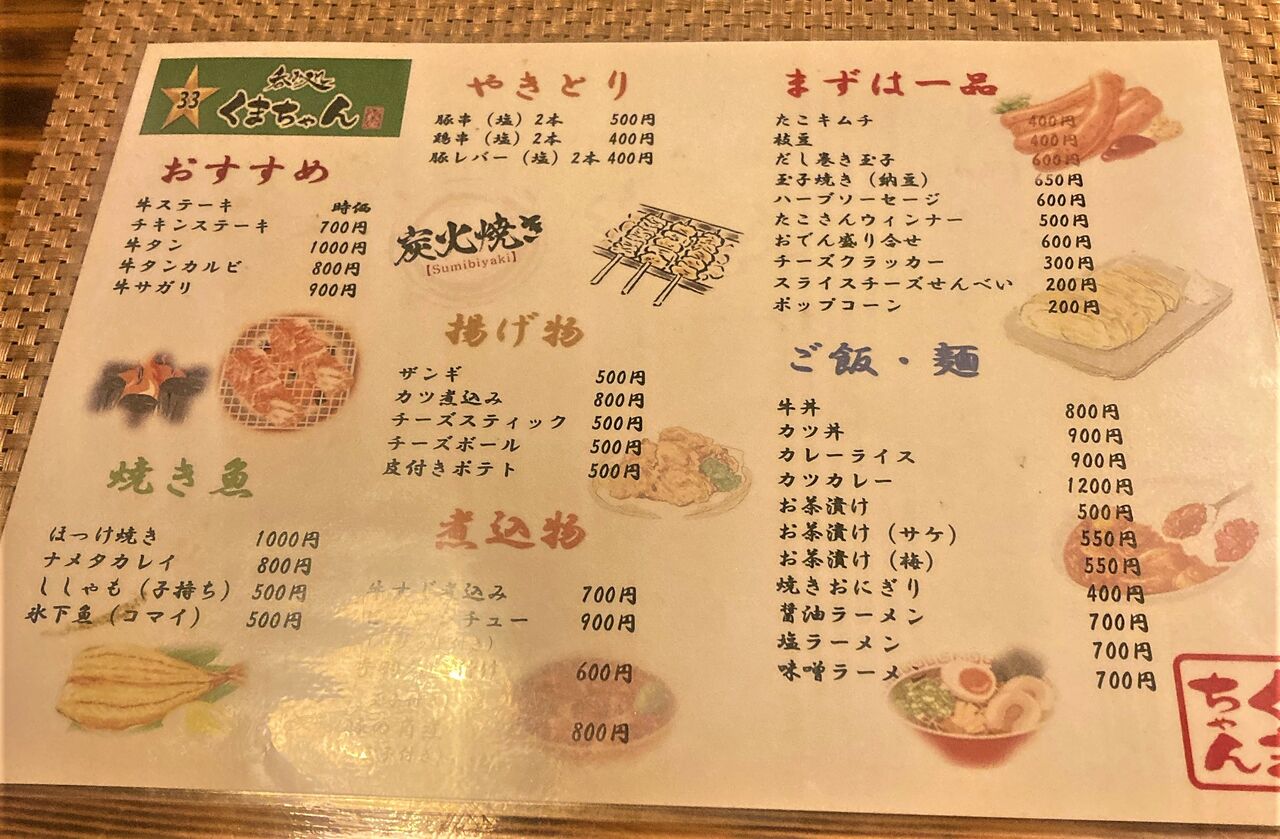 33
呑み処
くまちゃん
おすすめ
牛ステーキ 時価
チキンステーキ 700円
牛タン 1000円
牛タンカルビ 800円
牛サガリ 900円
焼き魚
ほっけ焼き 1000円
ナメタカレイ 800円
ししゃも(子持ち) 500円
氷下魚(コマイ) 500円
やきとり
豚串(塩)2本 500円
鶏串(塩)2本 400円
豚レバー(塩)2本 400円
炭火焼き
【Sumibiyaki】
揚げ物
ザンギ 500円
カツ煮込み 800円
チーズスティック 500円
チーズボール 500円
皮付きポテト 500円
煮込物
牛すじ煮込み 700円
チュー 900円
600円
800円
まずは一品
たこキムチ 400円
枝豆 400円
だし巻き玉子 600円
玉子焼き(納豆) 650円
ハーブソーセージ 600円
たこさんウィンナー 500円
おでん盛り合せ 600円
チーズクラッカー 300円
スライスチーズせんべい 200円
ポップコーン 200円
ご飯・麺
牛丼 800円
カツ丼 900円
カレーライス 900円
カツカレー 1200円
お茶漬け 500円
お茶漬け(サケ) 550円
お茶漬け(梅) 550円
焼きおにぎり 400円
醤油ラーメン 700円
塩ラーメン 700円
味噌ラーメ 700円
くま
ちゃん